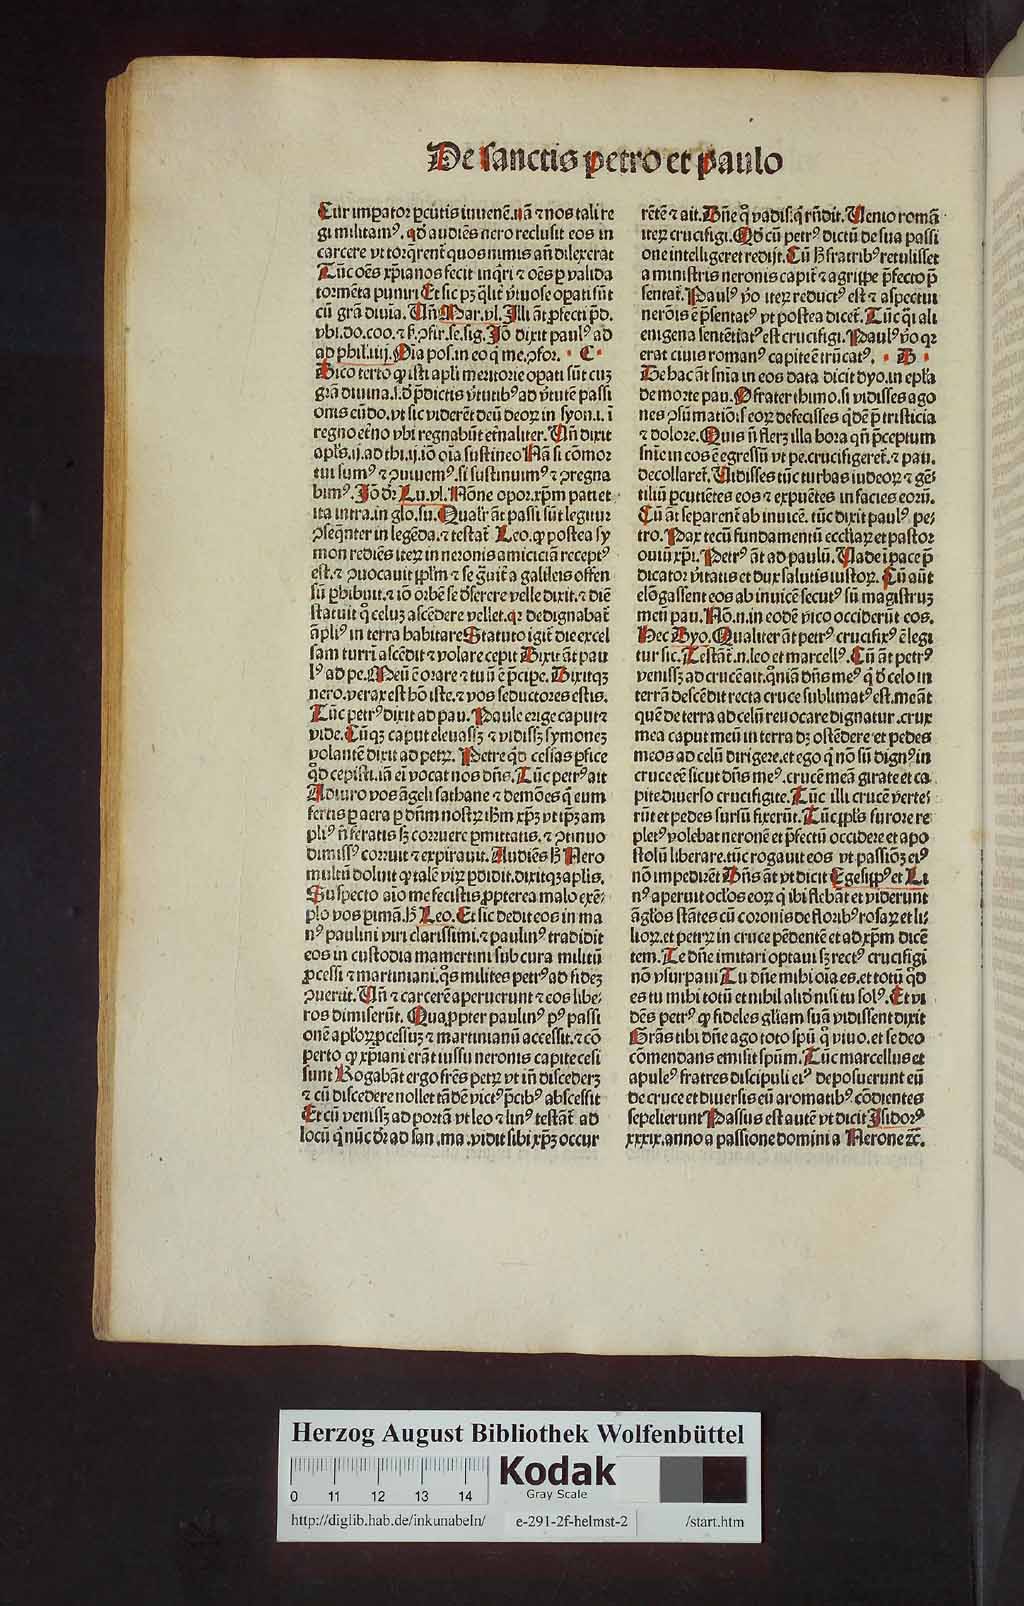 De sanctis petro et paulo
Cur impator ꝑcutis iuuenē. nā ⁊ nos tali re
gi militamꝰ. qd̓ audiēs nero reclusit eos in
carcere vt torq̄rent̓ quos nimis an̄ dilexerat
Tūc oēs xp̄ianos fecit inq̓ri ⁊ oēs ꝑ valida
tormēta puniri Et sic pꝫ qͥlit̓ v̓tuose oꝑati sūt
cū grā diuīa. Un̄ Mar. vl. Illi āt ꝓfecti p̄d.
vbi. do. coo. ⁊ ẜ. ꝯfir. se. sig. Jō dixit paulꝰ ad
ad phil. iiij. Oīa pos. in eo qͥ me. ꝯfor. · C ·
Dico tertō ꝙ isti apl̓i meritorie oꝑati sūt cuꝫ
grā diuina. s. d̓ p̄dictis v̓tutibꝰ ad v̓tutē passi
onis eūdo. vt sic viderēt deū deoꝝ in syon. i. ī
regno et̓no vbi regnabūt et̓naliter. Un̄ dixit
apl̓s. ij. ad thi. ij. iō oīa sustineo Nā si cōmor
tui sumꝰ ⁊ ꝯviuemꝰ. si sustinuimꝰ ⁊ ꝯregna
bimꝰ. Jō d̓r Lu. vl. Nōne opor. xp̄m pati et
ita intra. in glo. su. Qualit̓ āt passi sūt legitur
ꝯseqn̄ter in legēda. ⁊ testat̓ Leo. ꝙ postea sy
mon rediēs iteꝝ in neronis amiciciā receptꝰ
est. ⁊ ꝯuocauit ppl̓m ⁊ se g̓uit̓ a galileis offen
sū ꝓhibuit. ⁊ iō orbē se d̓serere velle dixit. ⁊ diē
statuit qͦ celuꝫ ascēdere vellet. qꝛ dedignabat̓
āpliꝰ in terra habitare Statuto igit̓ die excel
sam turrī ascēdit ⁊ volare cepit Dixit āt pau
lꝰ ad pe. Meū ē orare ⁊ tuū ē p̄cipe. Dixitqꝫ
nero. verax est hō iste. ⁊ vos seductores estis.
Tūc petrꝰ dixit ad pau. Paule erige caput ⁊
vide. Cūqꝫ caput eleuassꝫ ⁊ vidissꝫ symoneꝫ
volantē dixit ad petꝝ. Petre qͥd cessas ꝑfice
qͦd cepisti. iā ei vocat nos dn̄s. Tūc petrꝰ ait
Adiuro vos āgeli sathane ⁊ demōes qͥ eum
fertis ꝑ aera ꝑ dn̄m nostꝝ ih̓m xp̄ꝫ vt ip̄ꝫ am
pliꝰ n̄ feratis sꝫ corruere ꝑmittatis. ⁊ ꝯtinuo
dimissꝰ corruit ⁊ expirauit. Audiēs h̓ Nero
multū doluit qͥ talē viꝝ ꝑdidit. dixitqꝫ apl̓is.
Suspecto aīo me fecistis ꝓpterea malo exē
plo vos ꝑimā. h̓ Leo. Et sic dedit eos in ma
nꝰ paulini viri clarissimi. ⁊ paulinꝰ tradidit
eos in custodia mamertini sub cura militū
ꝓcessi ⁊ martiniani. qͦs milites petrꝰ ad fideꝫ
ꝯuertit. Un̄ ⁊ carcerē aperuerunt ⁊ eos libe
ros dimiserūt. Quaꝓpter paulinꝰ pꝰ passi
onē apl̓oꝝ ꝓcessuꝫ ⁊ martinianū accessit. ⁊ cō
perto ꝙ xp̄iani erāt iussu neronis capite cesi
sunt Rogabāt ergo fr̄es petꝝ vt in̄ discederꝫ
⁊ cū discedere nollet tādē victꝰ p̄cibꝰ abscessit
Et cū venissꝫ ad portā vt leo ⁊ linꝰ testāt̓ ad
locū qͥ nūc d̓r ad san. ma. vidit sibi xp̄ꝫ occur
rētē ⁊ ait. Dn̄e qͦ vadis. qͥ rn̄dit. Uenio romā
iteꝝ crucifigi. Qd̓ cū petrꝰ dictū de sua passi
one intelligeret redijt. Cū h̓ fratribꝰ retulisset
a ministris neronis capit̓ ⁊ agrippe p̄fecto p̄
sentat̓. Paulꝰ v̓o iteꝝ reductꝰ est ⁊ aspectui
nerōis ē p̄sentatꝰ vt postea dicet̓. Tūc qͥ ali
enigena sentētiatꝰ est crucifigi. Paulꝰ v̓o qꝛ
erat ciuis romanꝰ capite ē trūcatꝰ. · D ·
De hac āt sn̄ia in eos data dicit dyo. in ep̄l̓a
de morte pau. O frater thimo. si vidisses ago
nes ꝯsūmatiōīs eoꝝ defecisses qͥdē p̄ tristicia
⁊ dolore. Quis n̄ fleꝫ illa hora qn̄ p̄ceptum
sn̄ie in eos ē egressū vt pe. crucifigeret̓. ⁊ pau.
decollaret̓. Uidisses tūc turbas iudeoꝝ ⁊ gē
tiliū ꝑcutiētes eos ⁊ expuētes in facies eorū.
Cū āt separent̓ ab inuicē. tūc dixit paulꝰ pe
tro. Pax tecū fundamentū eccl̓iaꝝ et pastor
ouiū xp̄i. Petrꝰ āt ad paulū. Uade ī pace p̄
dicator v̓itatis et dux salutis iustoꝝ. Cū aūt
elōgassent eos ab inuicē secutꝰ sū magistruꝫ
meū pau. Nō. n. in eodē vico occiderūt eos.
Hec Dyo. Qualiter āt petrꝰ crucifixꝰ ē legi
tur sic. Testāt̓. n. leo et marcellꝰ. Cū āt petrꝰ
venissꝫ ad crucē ait. qͦniā dn̄s meꝰ qͥ d̓ celo in
terrā descēdit recta cruce sublimatꝰ est. me āt
quē de terra ad celū reuocare dignatur. crux
mea caput meū in terra dꝫ ostēdere et pedes
meos ad celū dirigere. et ego qͥ nō sū dignꝰ in
cruce eē sicut dn̄s meꝰ. crucē meā girate et ca
pite diuerso crucifigite. Tūc illi crucē verte
rūt et pedes sursū fixerūt. Tūc ppl̓s furore re
pletꝰ volebat neronē et p̄fectū occidere et apo
stolū liberare. tūc rogauit eos vt passiōꝫ eiꝰ
nō impedirēt Dn̄s āt vt dicit Egesippꝰ et Li
nꝰ aperuit ocl̓os eoꝝ qͥ ibi flebāt et viderunt
āgl̓os stātes cū coronis de floribꝰ rosaꝝ et li
lioꝝ. et petꝝ in cruce pēdentē et ad xp̄m dicē
tem. Te dn̄e imitari optaui sꝫ rectꝰ crucifigi
nō vsurpaui Tu dn̄e mihi oīa es. et totū qͦd
es tu mihi totū et nihil aliud nisi tu solꝰ. Et vi
dēs petrꝰ ꝙ fideles gl̓iam suā vidissent dixit
Grās tibi dn̄e ago toto sp̄ū qͦ viuo. et se deo
cōmendans emisit sp̄m. Tūc marcellus et
apuleꝰ fratres discipuli eiꝰ deposuerunt eū
de cruce et diuersis eū aromatibꝰ cōdientes
sepelierunt Passus est autē vt dicit Isidorꝰ
xxxix. anno a passione domini a Nerone ⁊c̄.
Herzog August Bibliothek Wolfenbüttel
0 11 12 13 14
Kodak
Gray Scale
http://diglib.hab.de/inkunabeln/ e-291-2f-helmst-2 /start.htm